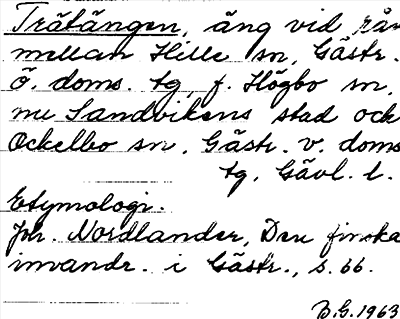 Trätängen, äng vid rån
mellan Hille sn, Gästr.
ö. doms. tg, f. Högbo sn,
nu Sandvikens stad och
Ockelbo sn, Gästr. v. doms
tg, Gävl. l.
Etymologi.
Joh. Nordlander, Den finska
invandr. i Gästr., s. 66.
B.G. 1963